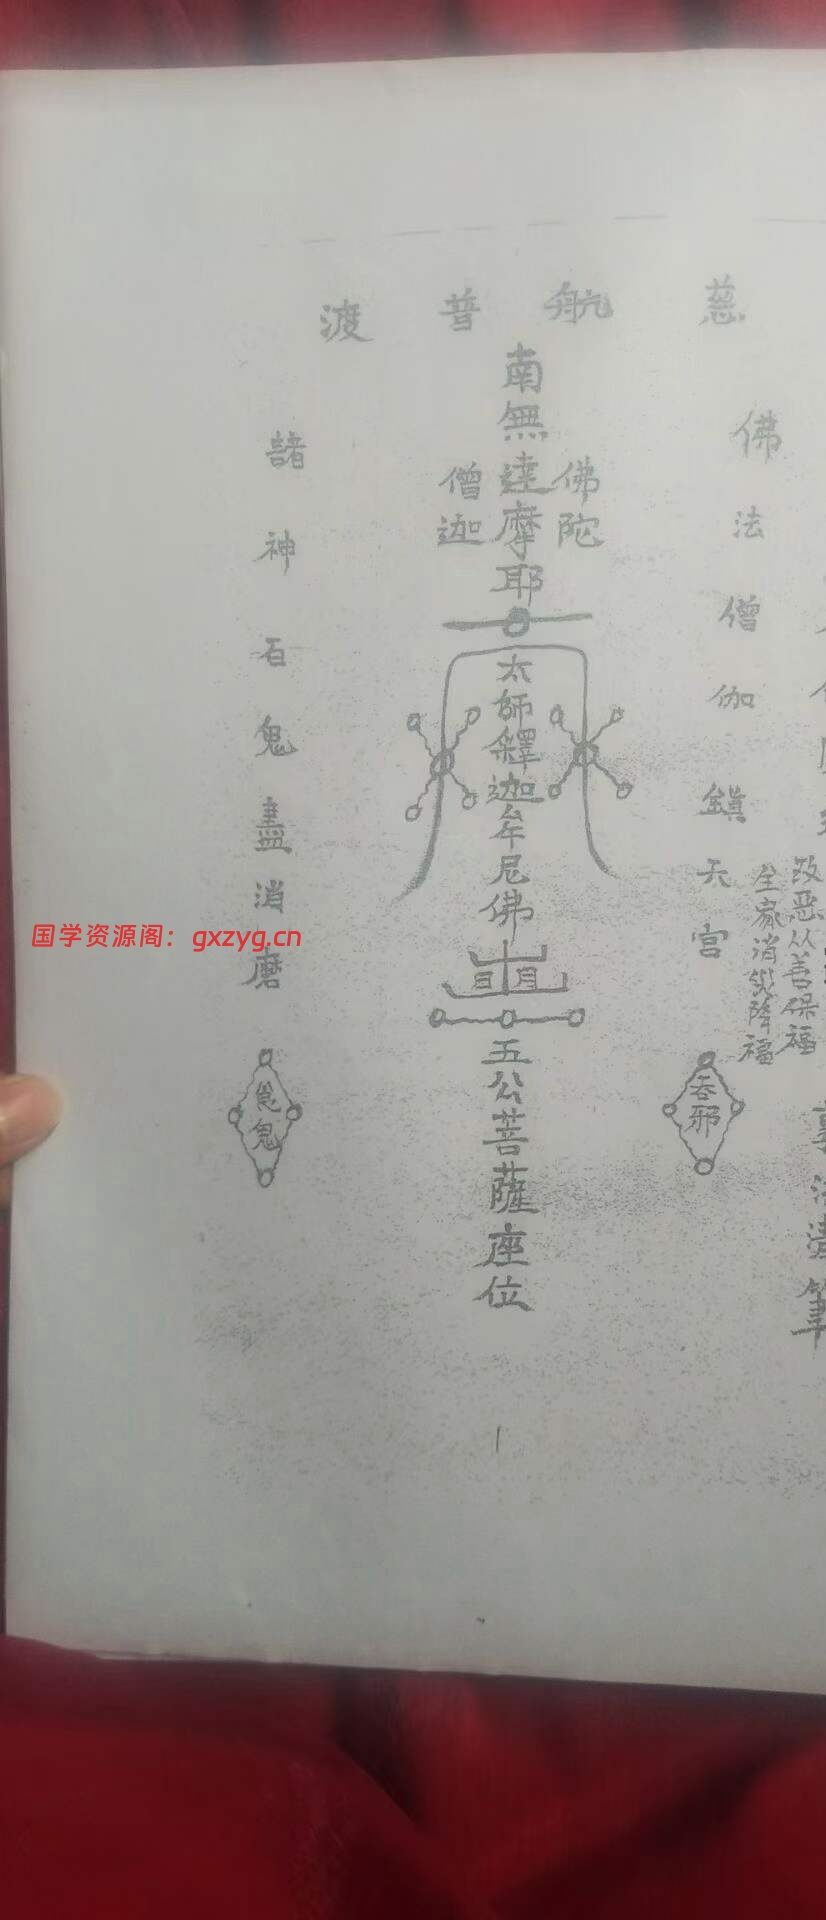 慈航普渡
佛法僧伽鎮天宮
改恶从善保福
全家消災降福
吞邪
南無達摩耶
佛陀
僧迦
太師釋迦牟尼佛
日月
五公菩薩座位
諸神百鬼盡消磨
鬼
法濤筆
国学资源阁：gxzyg.cn